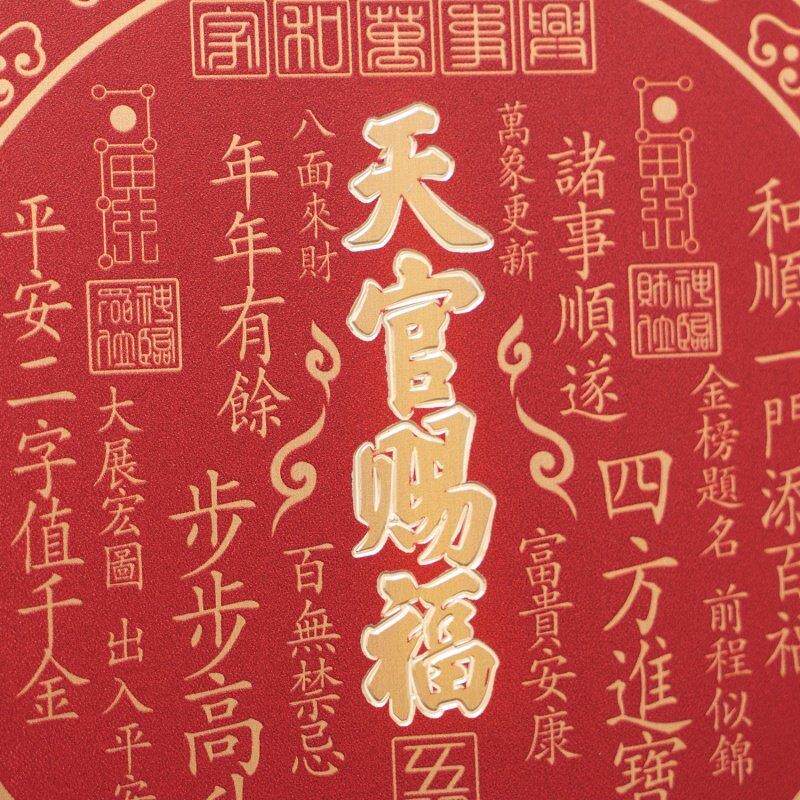 家和萬事興
和順一門添百福
金榜題名 前程似錦
四方進寶
諸事順遂
萬象更新
富貴安康
天官賜福
八面來財
百無禁忌
年年有餘
步步高
大展宏圖 出入平安
平安二字值千金